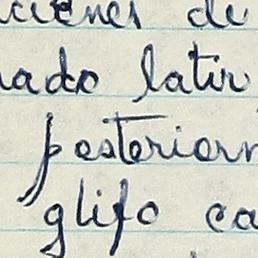 ciones de
ado latir
posteriorm
glifo ca